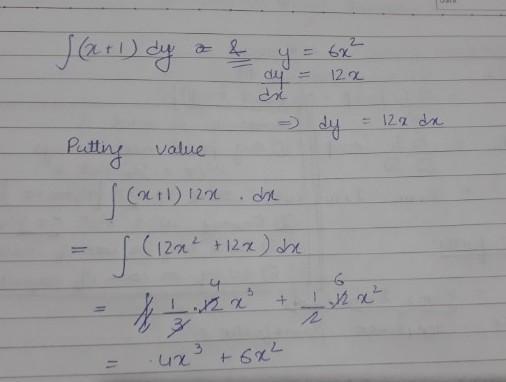 ∫(x+1) dy = & y = 6x²
dy/dx = 12x
⇒ dy = 12x dx
Putting value
∫ (x+1) 12x . dx
= ∫ (12x² + 12x) dx
= 1/3 . 12 4 x³ + 1/2 . 12 6 x²
= 4x³ + 6x²